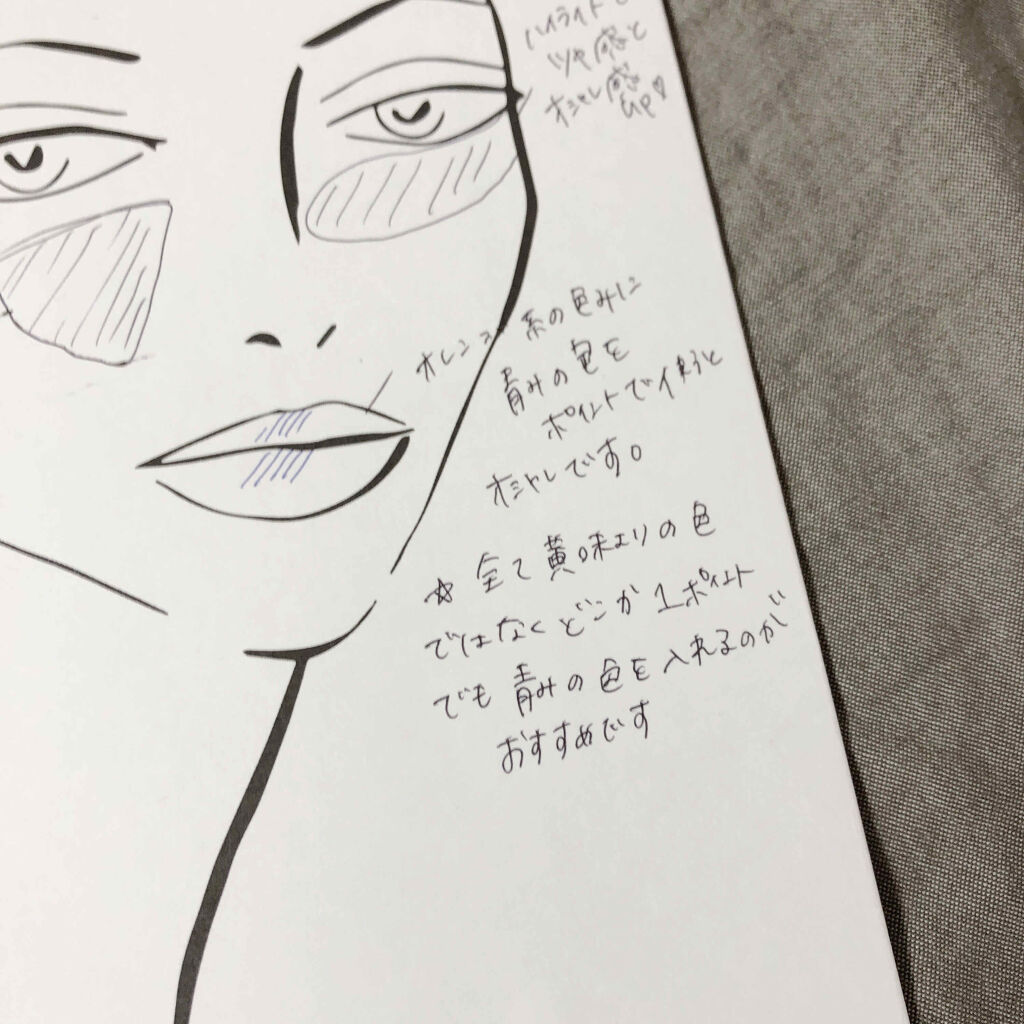 ハイライトで
ツヤ感と
オシャレ感
up♡
オレンジ系の色みに
青みの色を
ポイントで使うと
オシャレです。
☆全て黄味よりの色
ではなくどこか1ポイント
でも青みの色を入れるのが
おすすめです